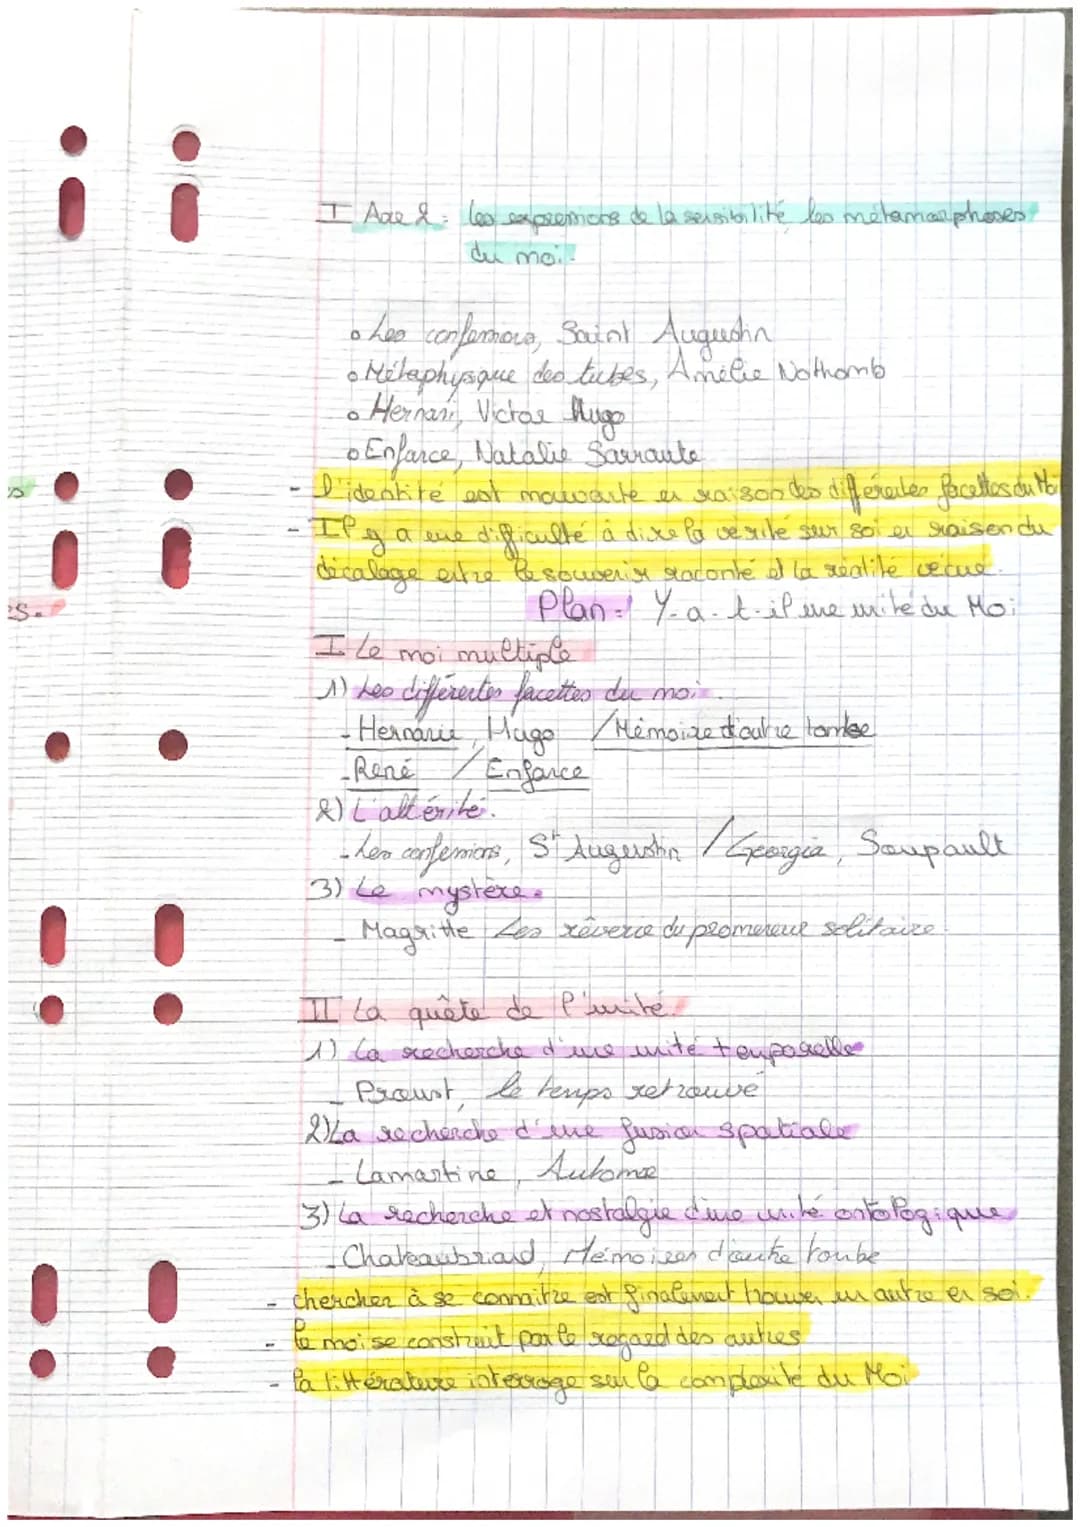 I Axe 2 : les expressions de la sensibilité, les métamorphoses
du moi.
o Les confessions, Saint Augustin
o Métaphysique des tubes, Amélie Nothomb
o Hernani, Victor Hugo
o Enfance, Natalie Sarraute
- L'identité est mouvante en raison des différentes facettes du Moi
- Il y a une difficulté à dire la vérité sur soi en raison du
décalage entre le souvenir raconté et la réalité vécue.
Plan : Y-a-t-il une unité du Moi
I Le moi multiple
1) Les différentes facettes du moi.
- Hernanie, Hugo / Mémoire d'outre tombe
- René / Enfance
2) L'altérité.
- Les confessions, St Augustin / Georgia, Soupault
3) Le mystère.
- Magritte Les rêverie du promeneur solitaire.
II La quête de l'unité.
1) La recherche d'une unité temporelle
- Proust, le temps retrouvé
2) La recherche d'une fusion spatiale
- Lamartine, Automne
3) La recherche et nostalgie d'une unité ontologique
- Chateaubriand, Mémoires d'outre tombe
- chercher à se connaitre est finalement trouver un autre en soi.
- le moi se construit par le regard des autres
- la littérature interroge sur la complexité du Moi